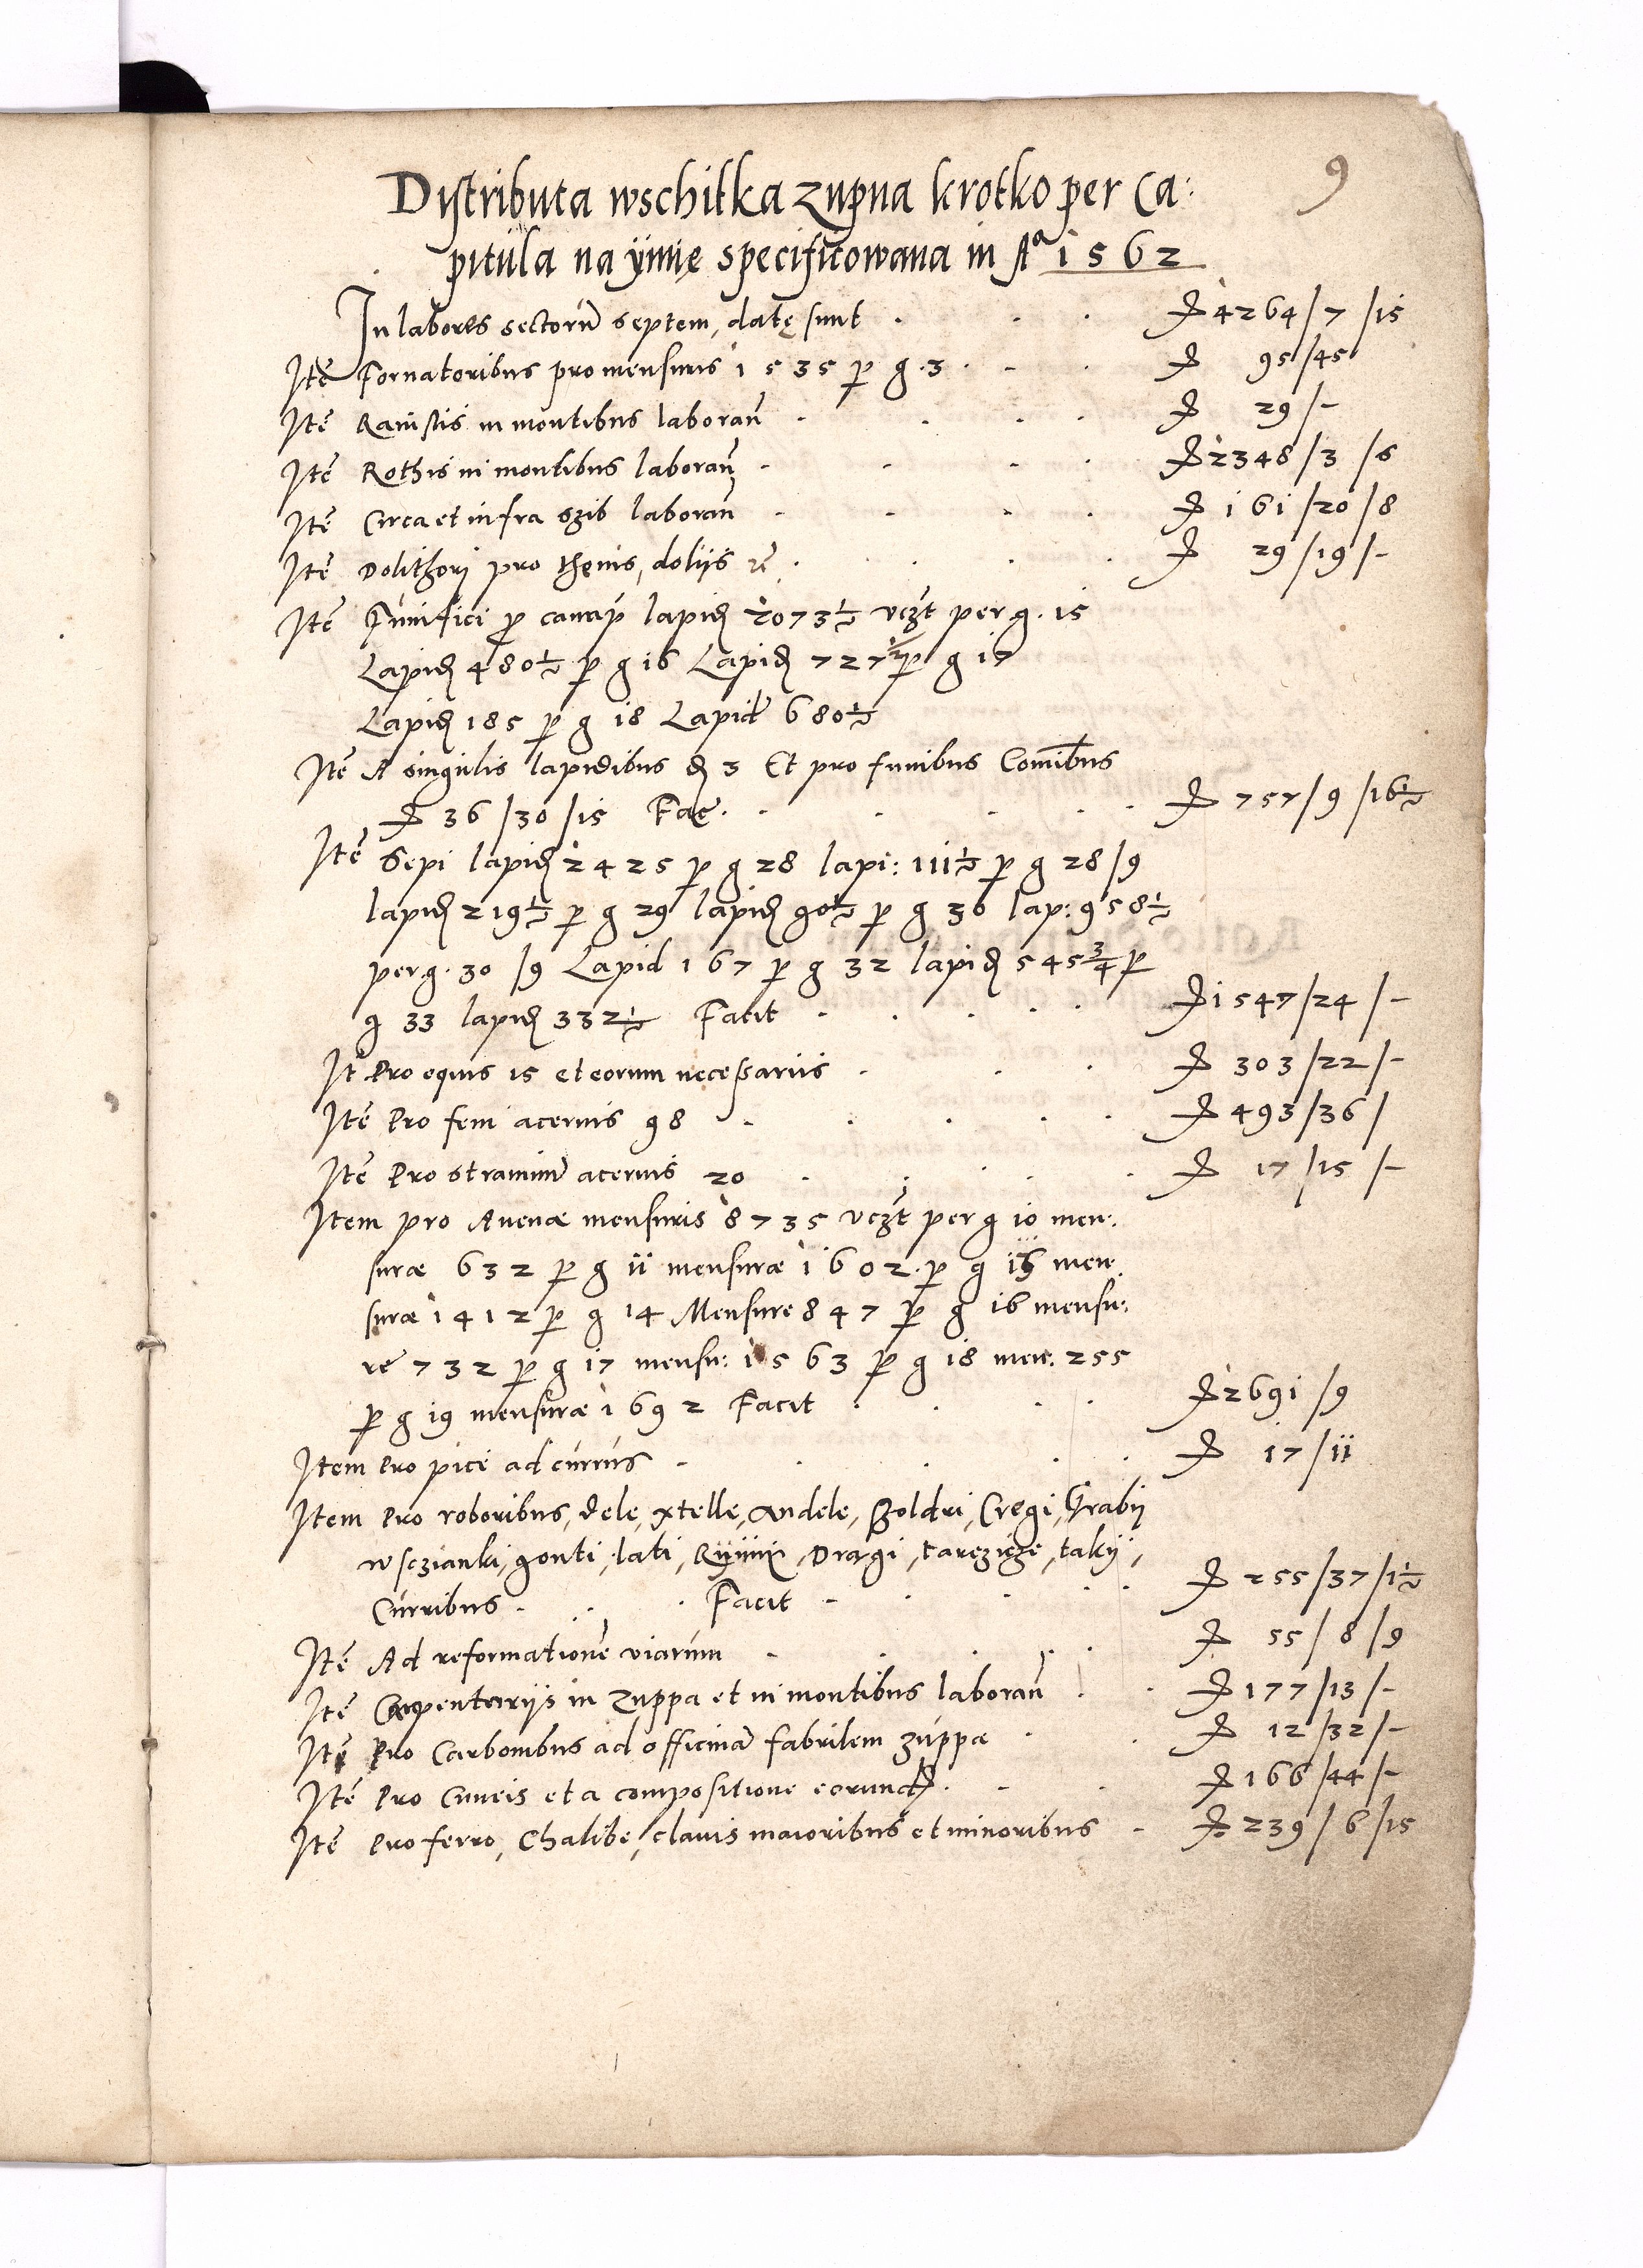 9
Distributa wschitka zupna krotko per Ca:
pitula na ÿmię specificowana in Aº 1562
In labores sectorū septem, datę sunt 4264/7/15
Itē Fornatoribus pro mensuris 1535 p g. 3 95/45
Itē Ranistis in montibus laboran̄ 29/-
Itē Rothis in montibus laboran̄ 2348/3/6
Itē Circa et infra szib laboran̄ 161/20/8
Itē Dolithori pro thęnis, doliis 29/19/-
Itē Funifici p canap lapid 2073½ vczt per g. 15
Lapid 480½ p g 16 Lapid 727½ p g 17
Lapid 185 p g 18 Lapid 680½
Itē A singulis lapidibus d 3 Et pro funibus Comībus
36/30/15 Fac. 757/9/16½
Itē Sepi lapid 2425 p g 28 lapi: 111½ p g 28/9
lapid 219½ p g 29 lapid 90½ p g 30 lap: 958½
per g. 30/9 Lapid 167 p g 32 lapid 545¾ p
g 33 lapid 332½ Facit 1547/24/-
It Pro equis 15 et eorum necessariis 303/22/-
Itē Pro feni acervis 98 493/36/
Itē Pro straminū acervis 20 17/15/-
Item pro Auenæ mensuris 8735 vczt per g 10 men:
suræ 632 p g 11 mensuræ 1602. p g men:
suræ 1412 p g 14 Mensure 847 p g 16 mensu:
re 732 p g 17 mensu: 1563 p g 18 men: 255
p g 19 mensuræ 1692 Facit 2691/9
Item Pro pice ad currus 17/11
Item Pro roboribus, dele, xtelle, Andele, Boldri, Cregi, Grabÿ
w sczianki, gonti, lati, Rÿnnÿ, Dragi, tarczicze, takÿ,
Curribus Facit 255/37/1½
Itē Ad reformationē viarum 55/8/9
Itē Carpentariis in Zuppa et in montibus laboran̄ 177/13/-
Itē Pro Carbonibus ad officinā fabrilem zuppæ 12/32/-
Itē Pro Cuneis et a compositione eorund 166/44/-
Itē Pro ferro, Chalibe, clauis maioribus et minoribus 239/6/15